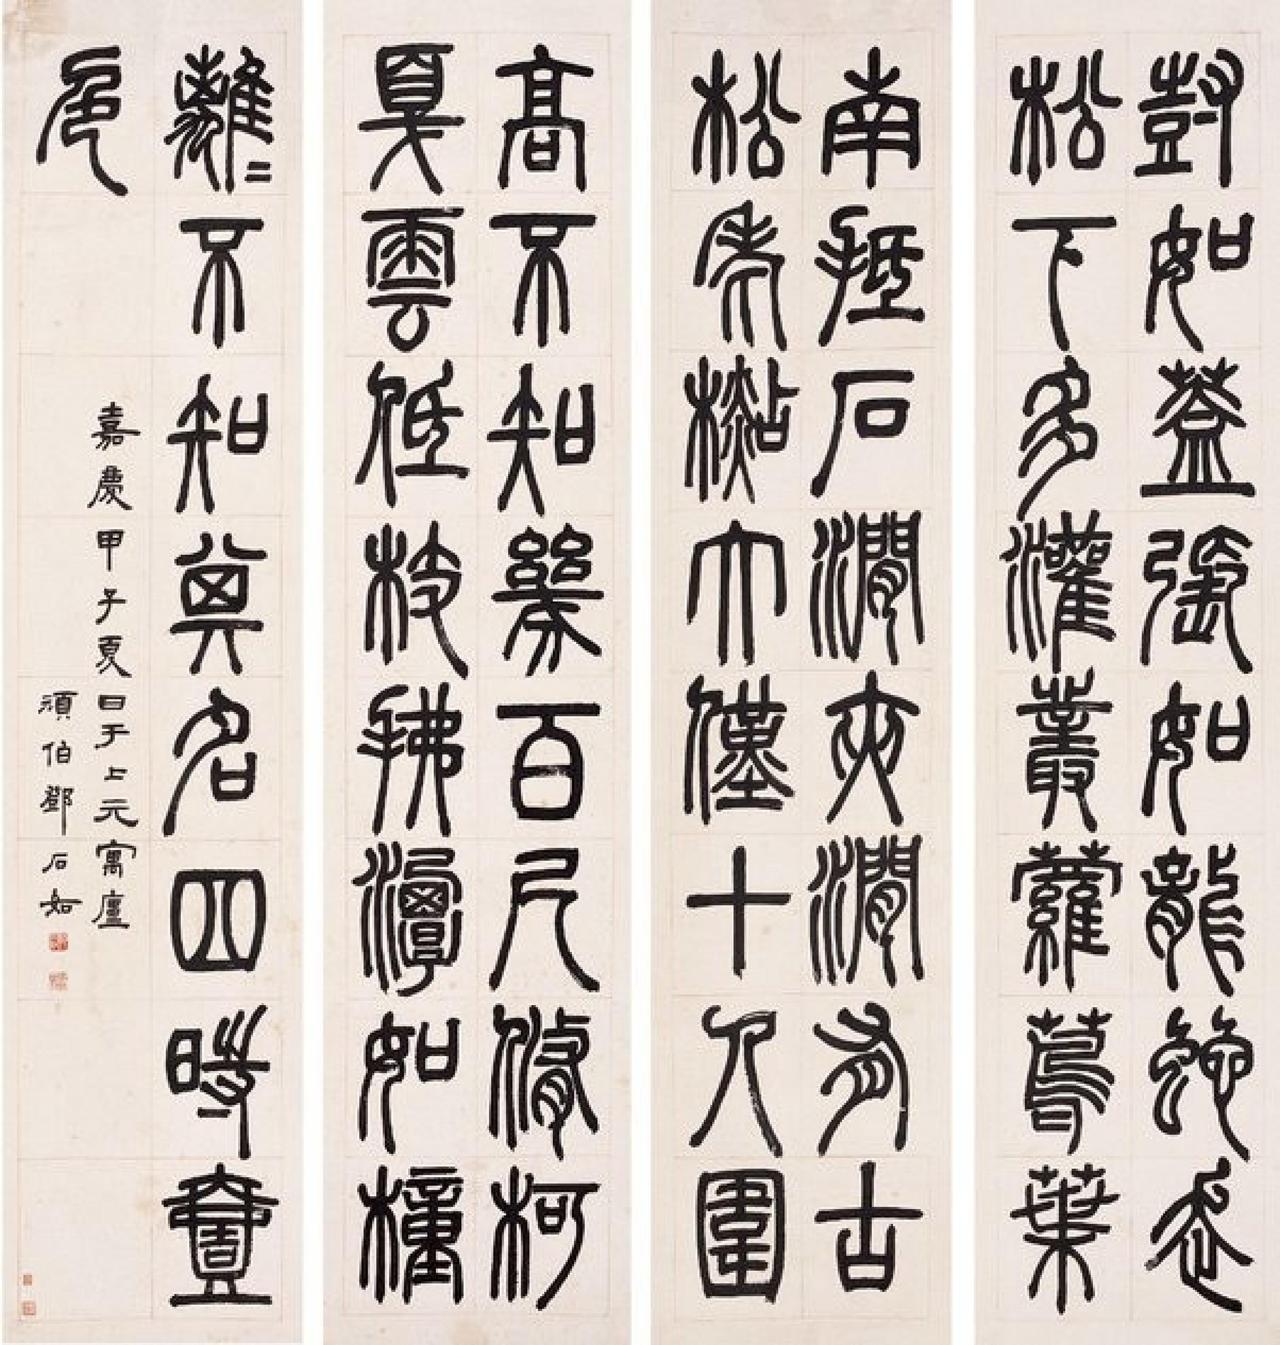 尌如蓋張如龍蛇走
松下多灌叢蘿蔦葉
南抵石澗夾澗有古
松老檆大僅十人圍
高不知幾百尺脩柯
戛雲低枝拂潭如幢
離〻不知其名四時壹
色
嘉慶甲子夏日于上元寓廬
頑伯鄧石如